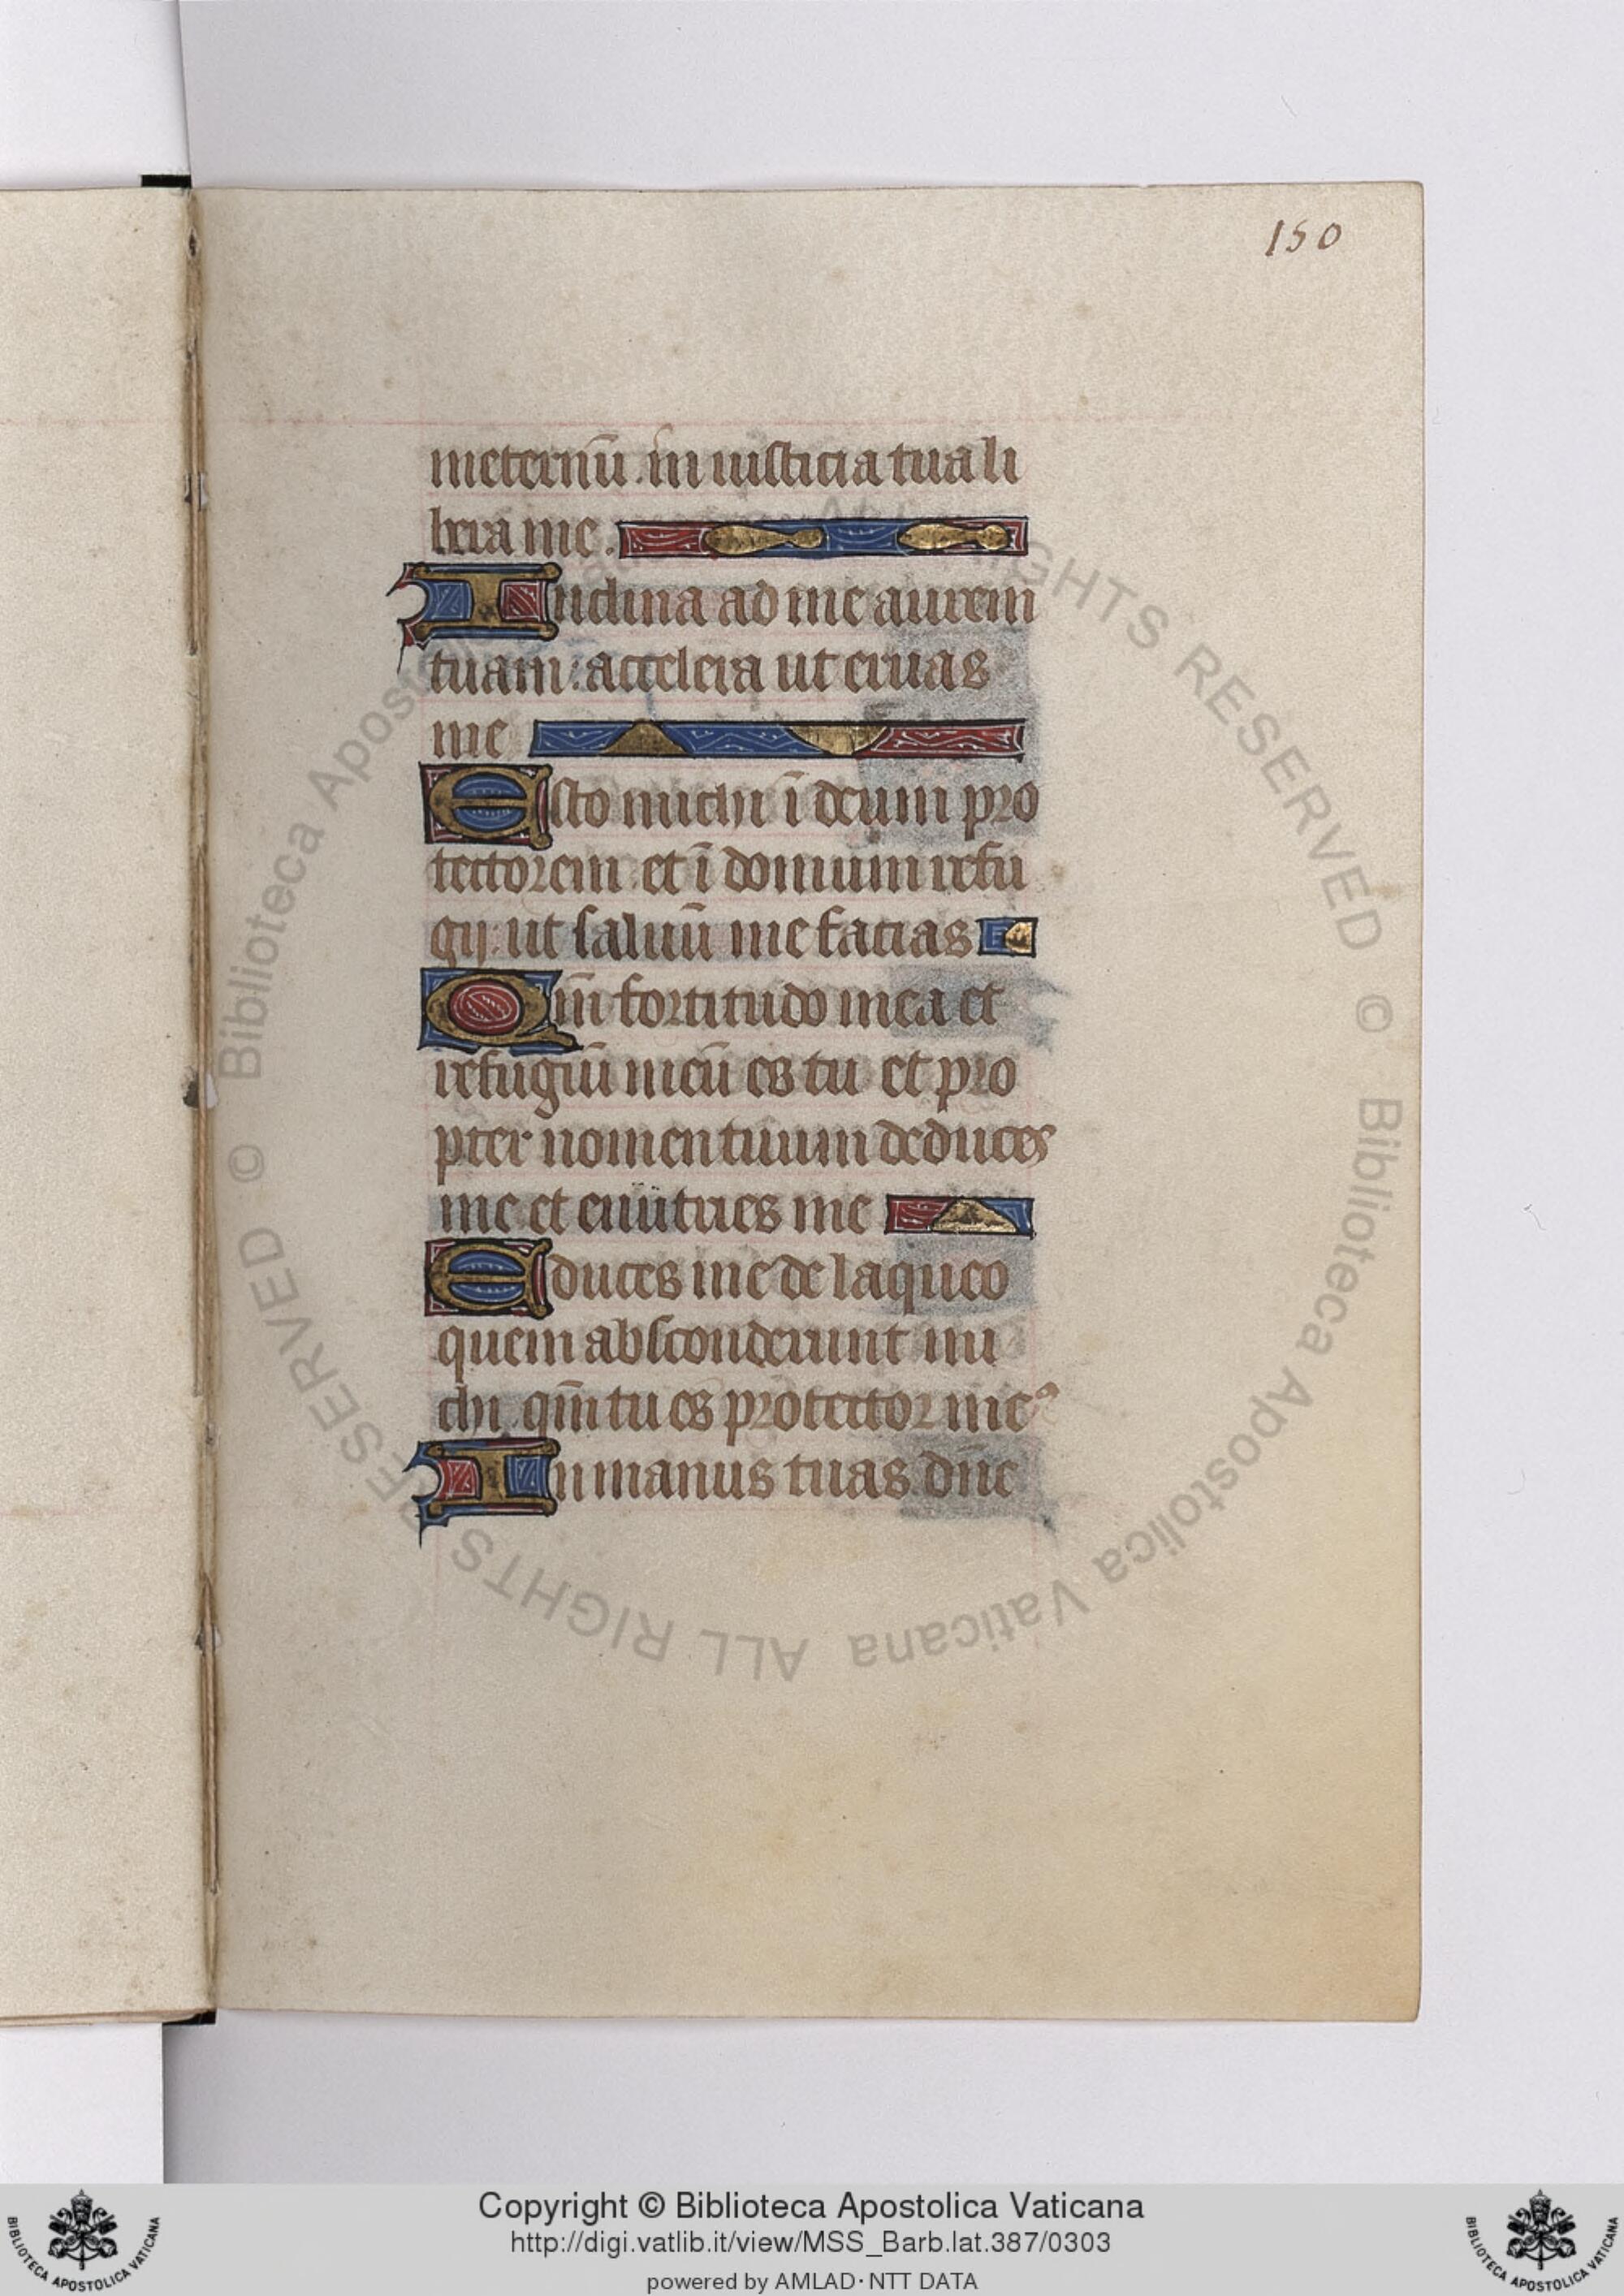 150
ineternū. in iusticia tua li
bera me.
Inclina ad me aurem
tuam: accelera ut eruas
me
Esto michi ī deum pro
tectorem. et ī domum refu
gij: ut saluū me facias
Qm̄ fortitudo mea et
refugiū meū es tu et pro
pter nomen tuum deduces
me et enutries me
Educes me de laqueo
quem absconderunt mi
chi. qm̄ tu es protector meꝰ
In manus tuas. dn̄e
© Biblioteca Apostolica Vaticana ALL RIGHTS RESERVED © Biblioteca Apostolica Vaticana ALL RIGHTS RESERVED
Copyright © Biblioteca Apostolica Vaticana
http://digi.vatlib.it/view/MSS_Barb.lat.387/0303
powered by AMLAD・NTT DATA
BIBLIOTECA APOSTOLICA VATICANA
BIBLIOTECA APOSTOLICA VATICANA